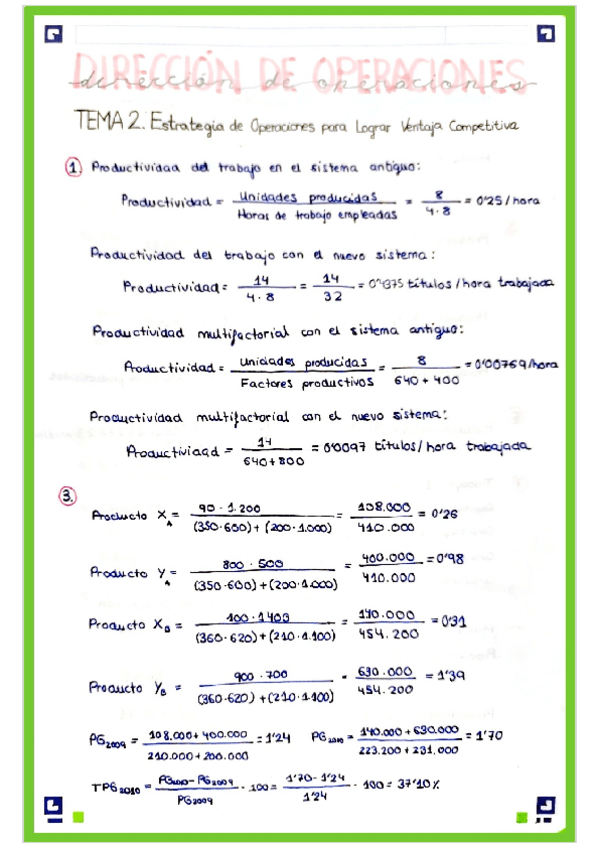 DIRECCIÓN DE OPERACIONES
dirección de operaciones
TEMA 2. Estrategia de Operaciones para Lograr Ventaja Competitiva
1. Productividad del trabajo en el sistema antiguo:
Productividad = Unidades producidas / Horas de trabajo empleadas = 8 / 4·8 = 0'25/hora
Productividad del trabajo con el nuevo sistema:
Productividad = 14 / 4·8 = 14 / 32 = 0'4375 títulos/hora trabajada
Productividad multifactorial con el sistema antiguo:
Productividad = Unidades producidas / Factores productivos = 8 / 640 + 400 = 0'00769/hora
Productividad multifactorial con el nuevo sistema:
Productividad = 14 / 640+800 = 0'0097 títulos/hora trabajada
3. Producto X_A = 90 · 1.200 / (350·600)+(200·1.000) = 108.000 / 410.000 = 0'26
Producto Y_A = 800 · 500 / (350·600)+(200·1.000) = 400.000 / 410.000 = 0'98
Producto X_B = 100·1400 / (360·620)+(210·1.100) = 140.000 / 454.200 = 0'31
Producto Y_B = 900 · 700 / (360·620)+(210·1.100) = 630.000 / 454.200 = 1'39
PG2009 = 108.000+400.000 / 210.000+200.000 = 1'24 PG2010 = 140.000+630.000 / 223.200+231.000 = 1'70
TPG2010 = PG2010-PG2009 / PG2009 · 100 = 1'70-1'24 / 1'24 · 100 = 37'10%